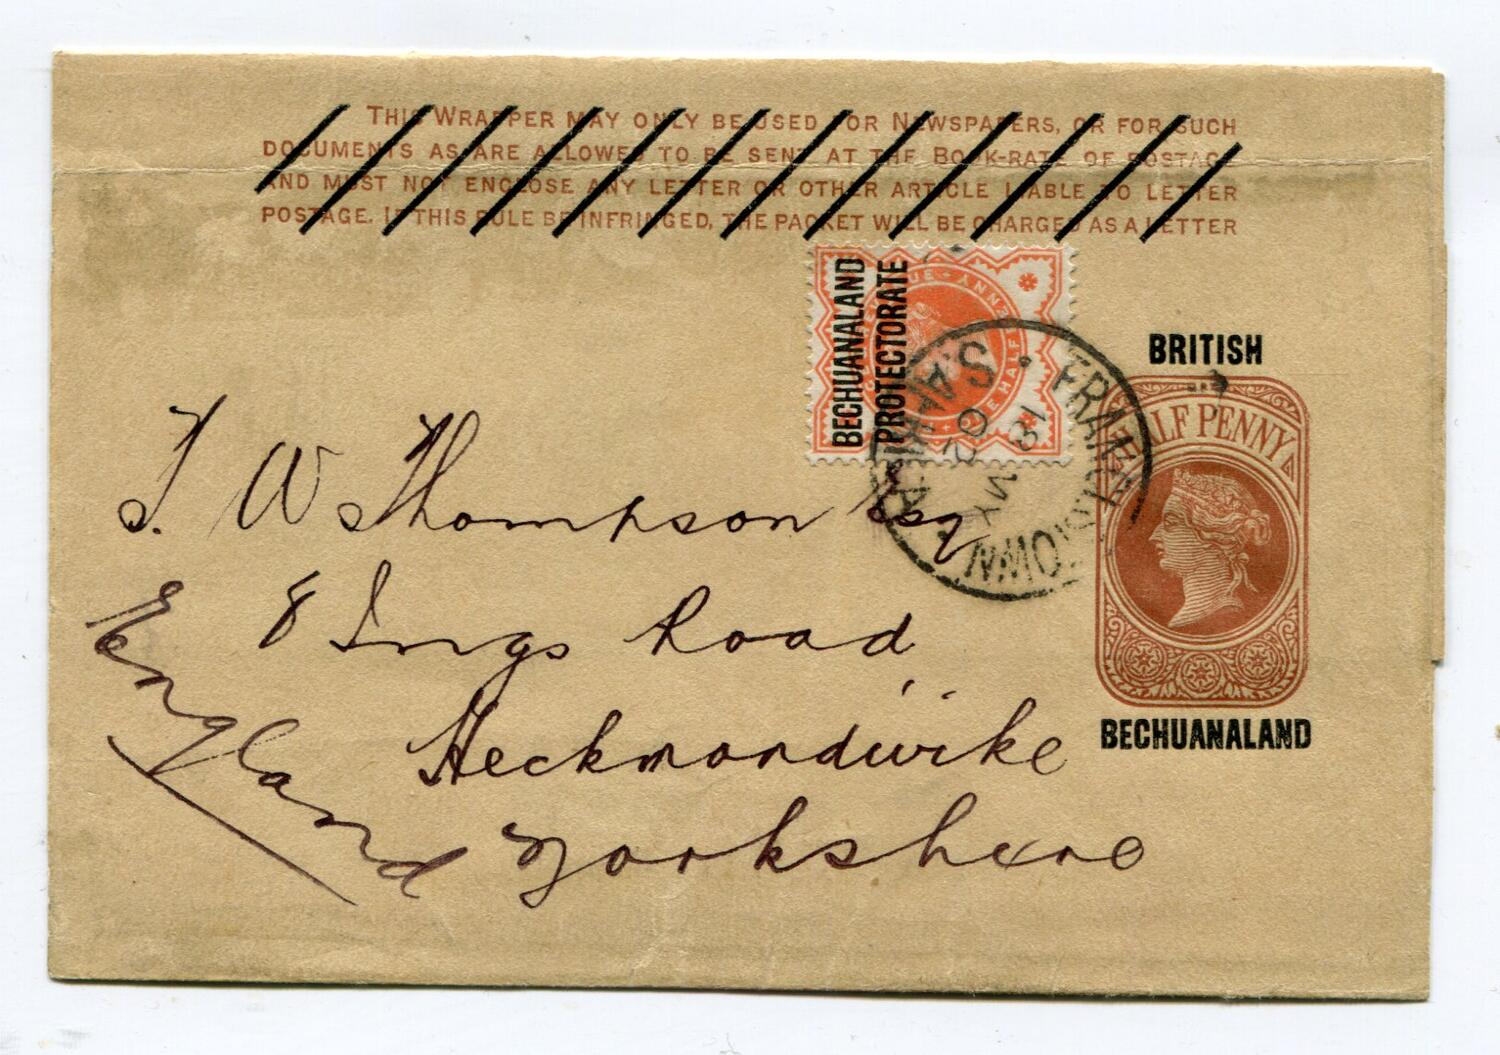 THIS WRAPPER MAY ONLY BE USED FOR NEWSPAPERS, OR FOR SUCH
DOCUMENTS AS ARE ALLOWED TO BE SENT AT THE BOOK-RATE OF POSTAGE
AND MUST NOT ENCLOSE ANY LETTER OR OTHER ARTICLE LIABLE TO LETTER
POSTAGE. IF THIS RULE BE INFRINGED, THE PACKET WILL BE CHARGED AS A LETTER
BECHUANALAND
PROTECTORATE
ONE HALF PENNY
BRITISH
HALF PENNY
BECHUANALAND
FRANCISTOWN
S. AFRICA
18 MY
T. W Thompson Esq
8 Ings Road
Heckmondwike
Yorkshire
England